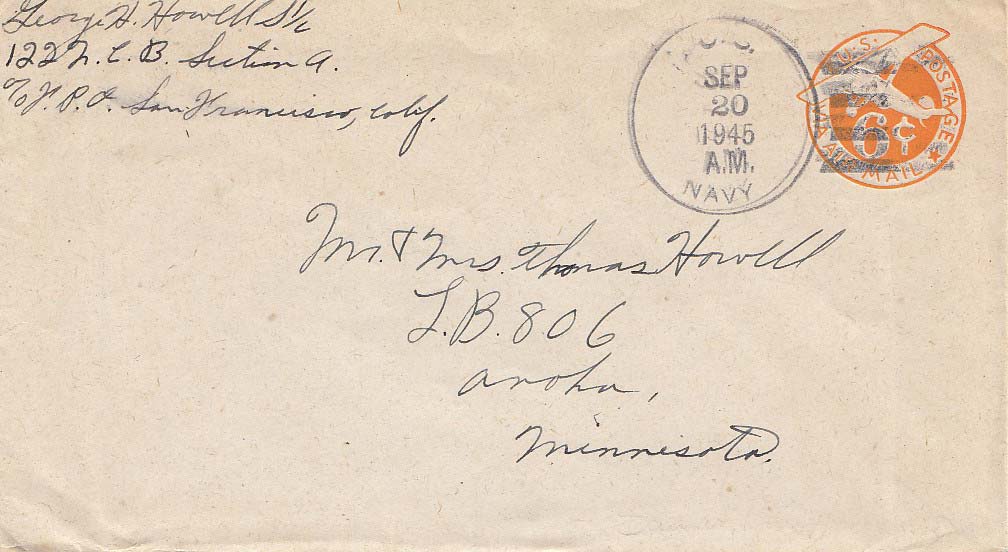 George H. Howell S1/c
122 N. C. B. Section A.
c/o F. P. O. San Francisco, Calif.
SEP
20
1945
A.M.
NAVY
U.S. POSTAGE
6¢
VIA AIR MAIL
Mr. & Mrs. Thomas Howell
L.B. 806
Anoka,
Minnesota.